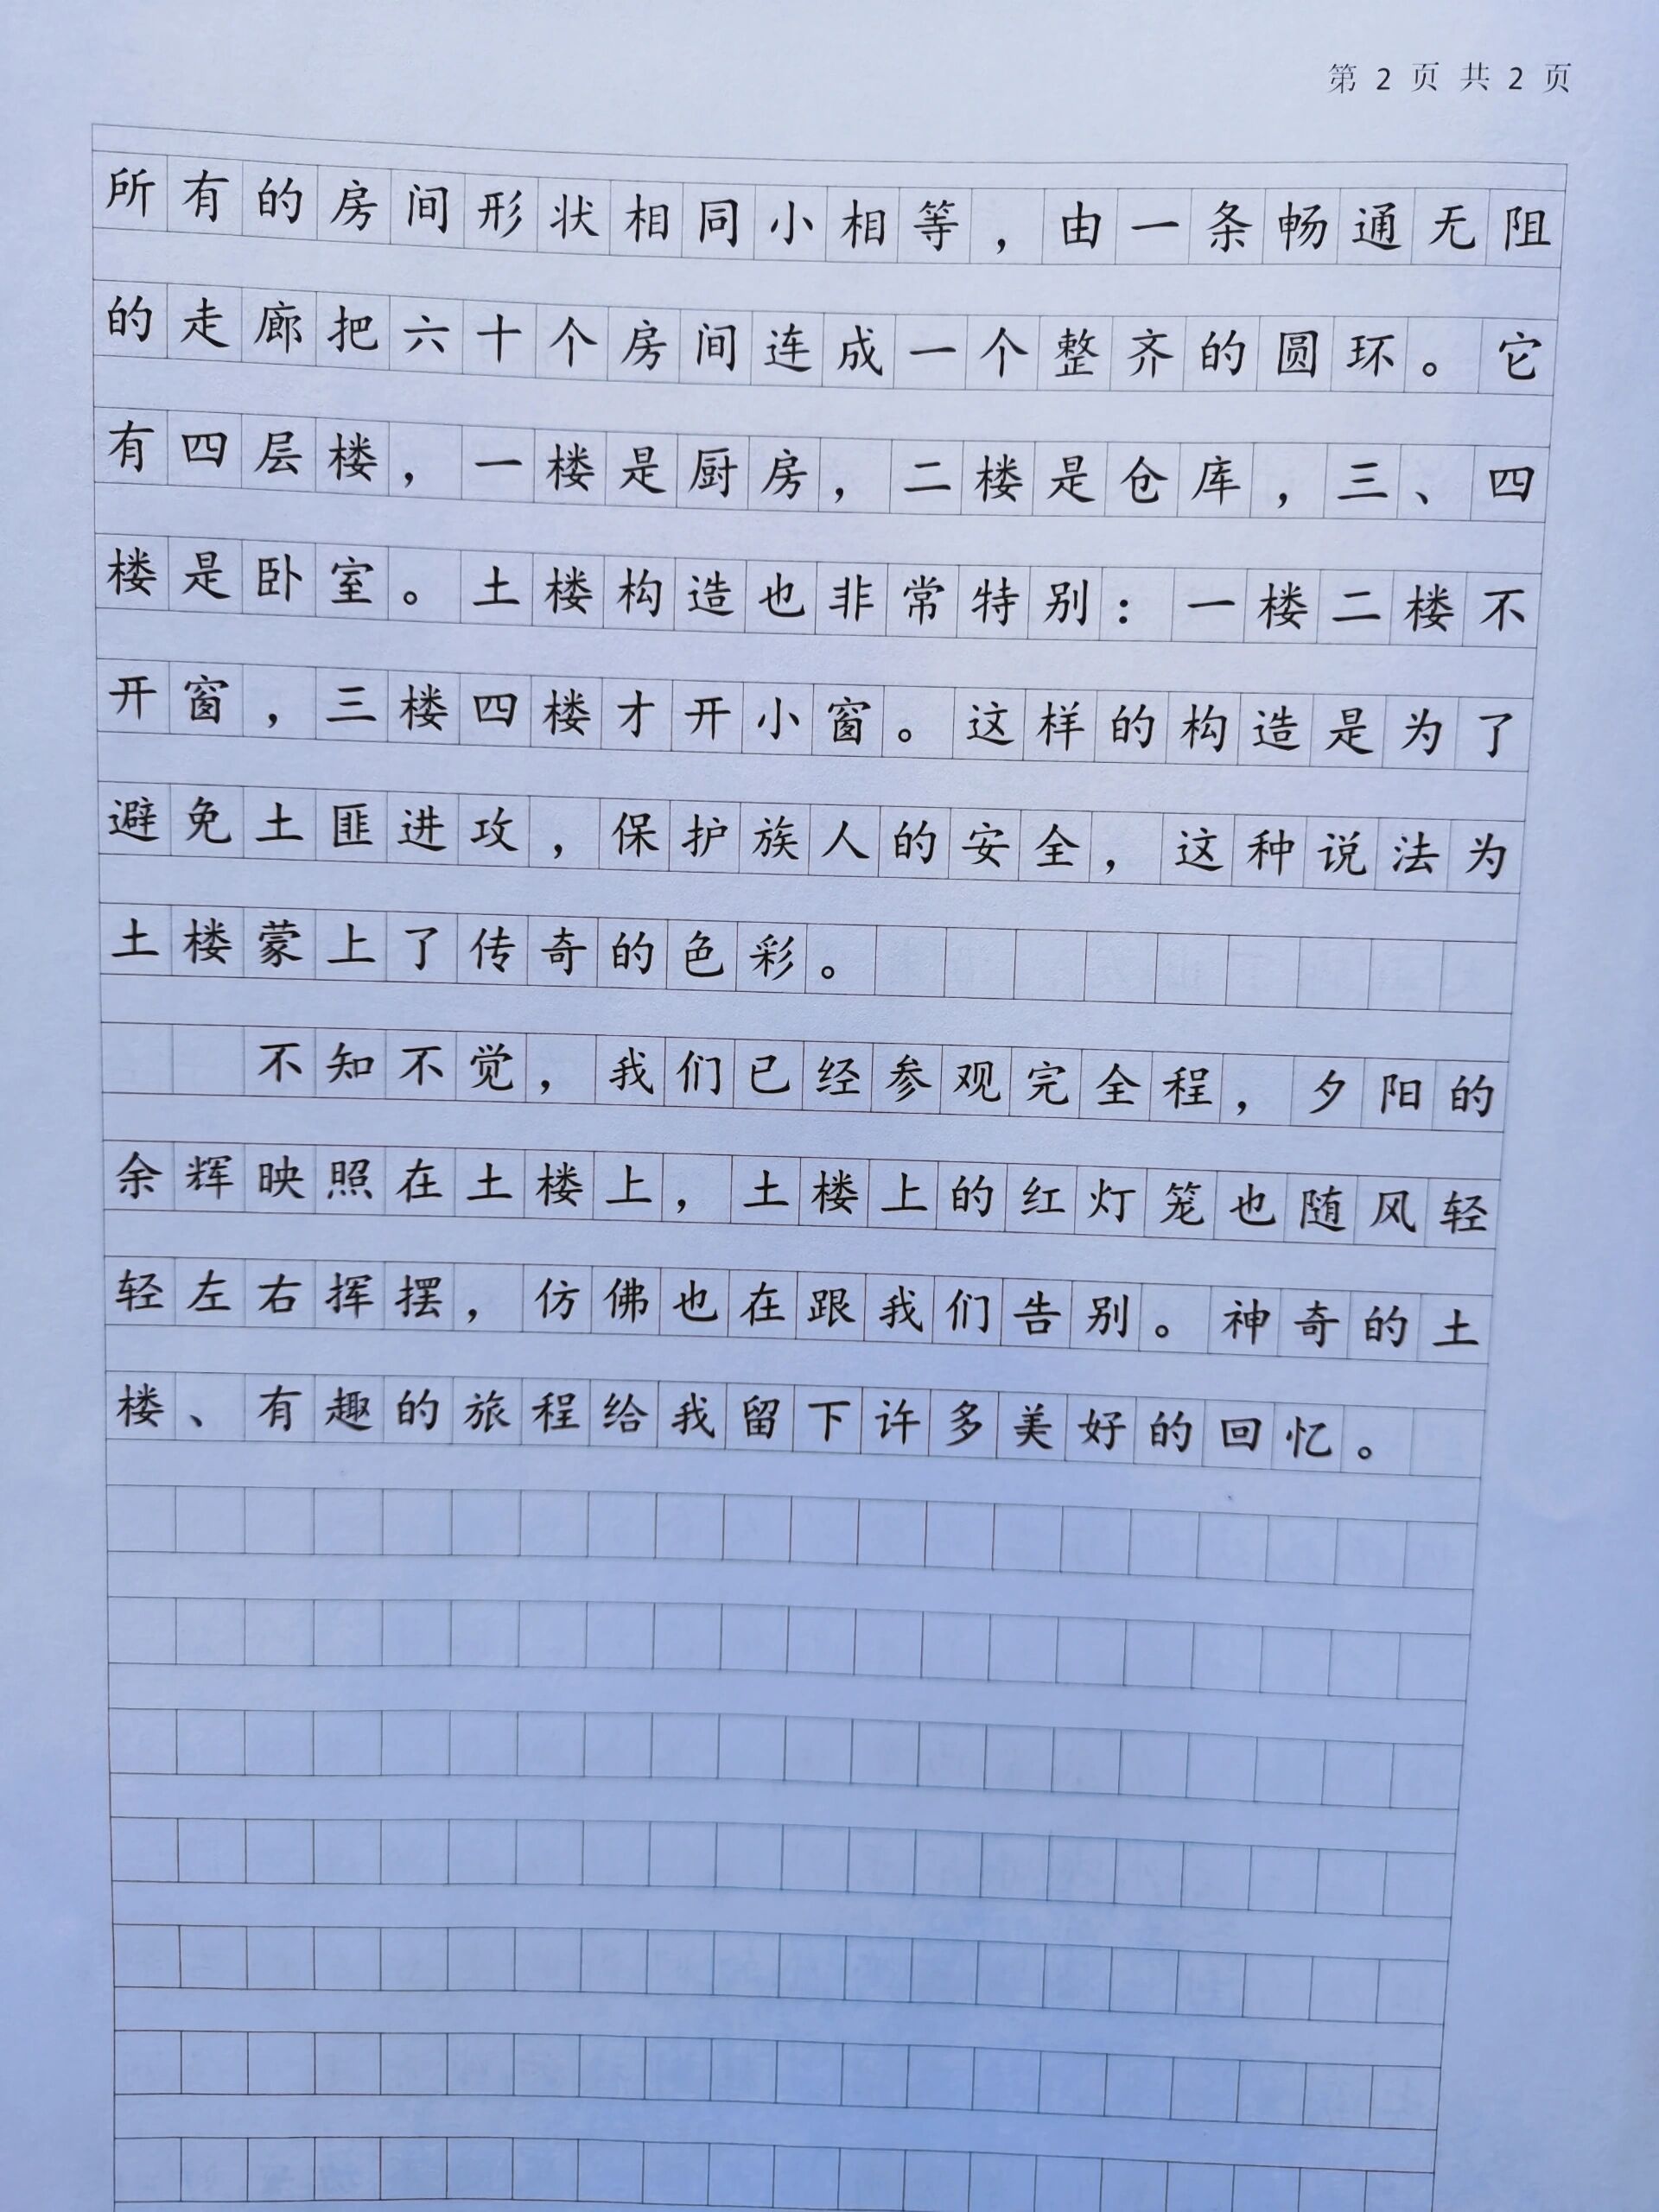 第 2 页 共 2 页
所有的房间形状相同小相等，由一条畅通无阻
的走廊把六十个房间连成一个整齐的圆环。它
有四层楼，一楼是厨房，二楼是仓库，三、四
楼是卧室。土楼构造也非常特别：一楼二楼不
开窗，三楼四楼才开小窗。这样的构造是为了
避免土匪进攻，保护族人的安全，这种说法为
土楼蒙上了传奇的色彩。
不知不觉，我们已经参观完全程，夕阳的
余辉映照在土楼上，土楼上的红灯笼也随风轻
轻左右挥摆，仿佛也在跟我们告别。神奇的土
楼、有趣的旅程给我留下许多美好的回忆。